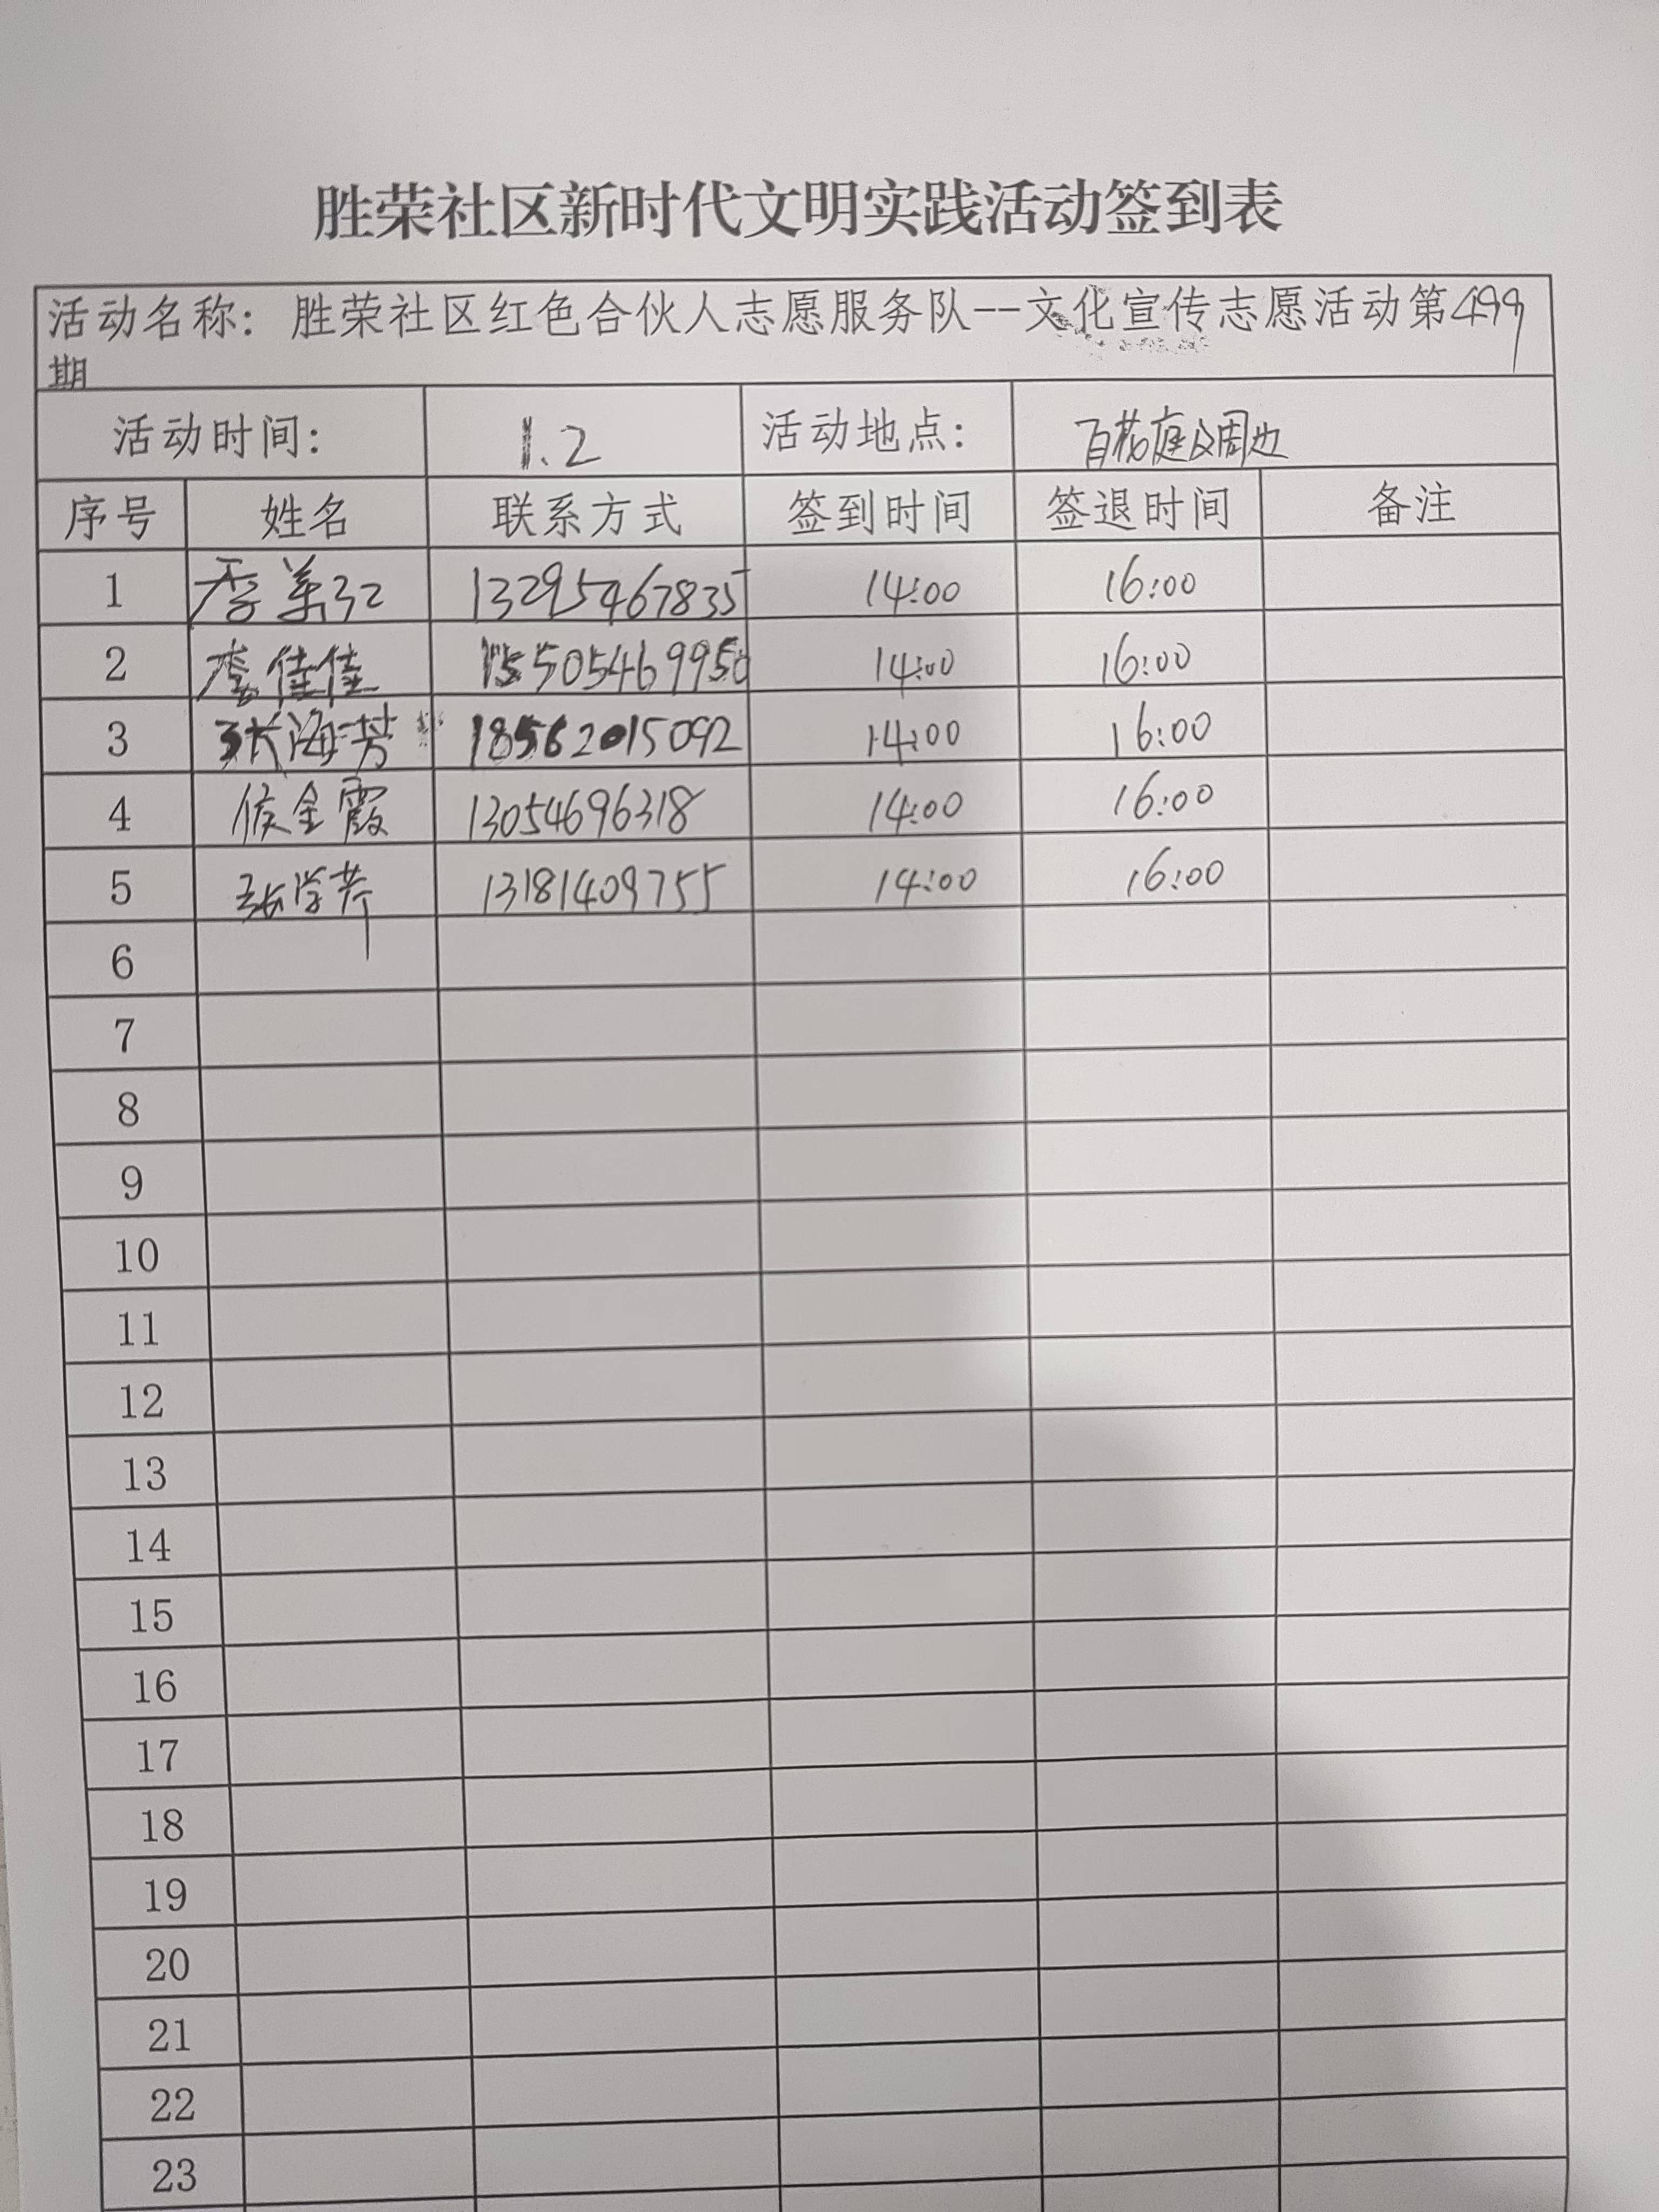 胜荣社区新时代文明实践活动签到表
活动名称：胜荣社区红色合伙人志愿服务队--文化宣传志愿活动第499
期
活动时间： 1.2 活动地点： 百花庭及周边
序号 姓名 联系方式 签到时间 签退时间 备注
1 13295467835 14:00 16:00
2 李佳佳 15505469950 14:00 16:00
3 张海芳 18562015092 14:00 16:00
4 侯金霞 13054696318 14:00 16:00
5 张学芹 13181409755 14:00 16:00
6
7
8
9
10
11
12
13
14
15
16
17
18
19
20
21
22
23